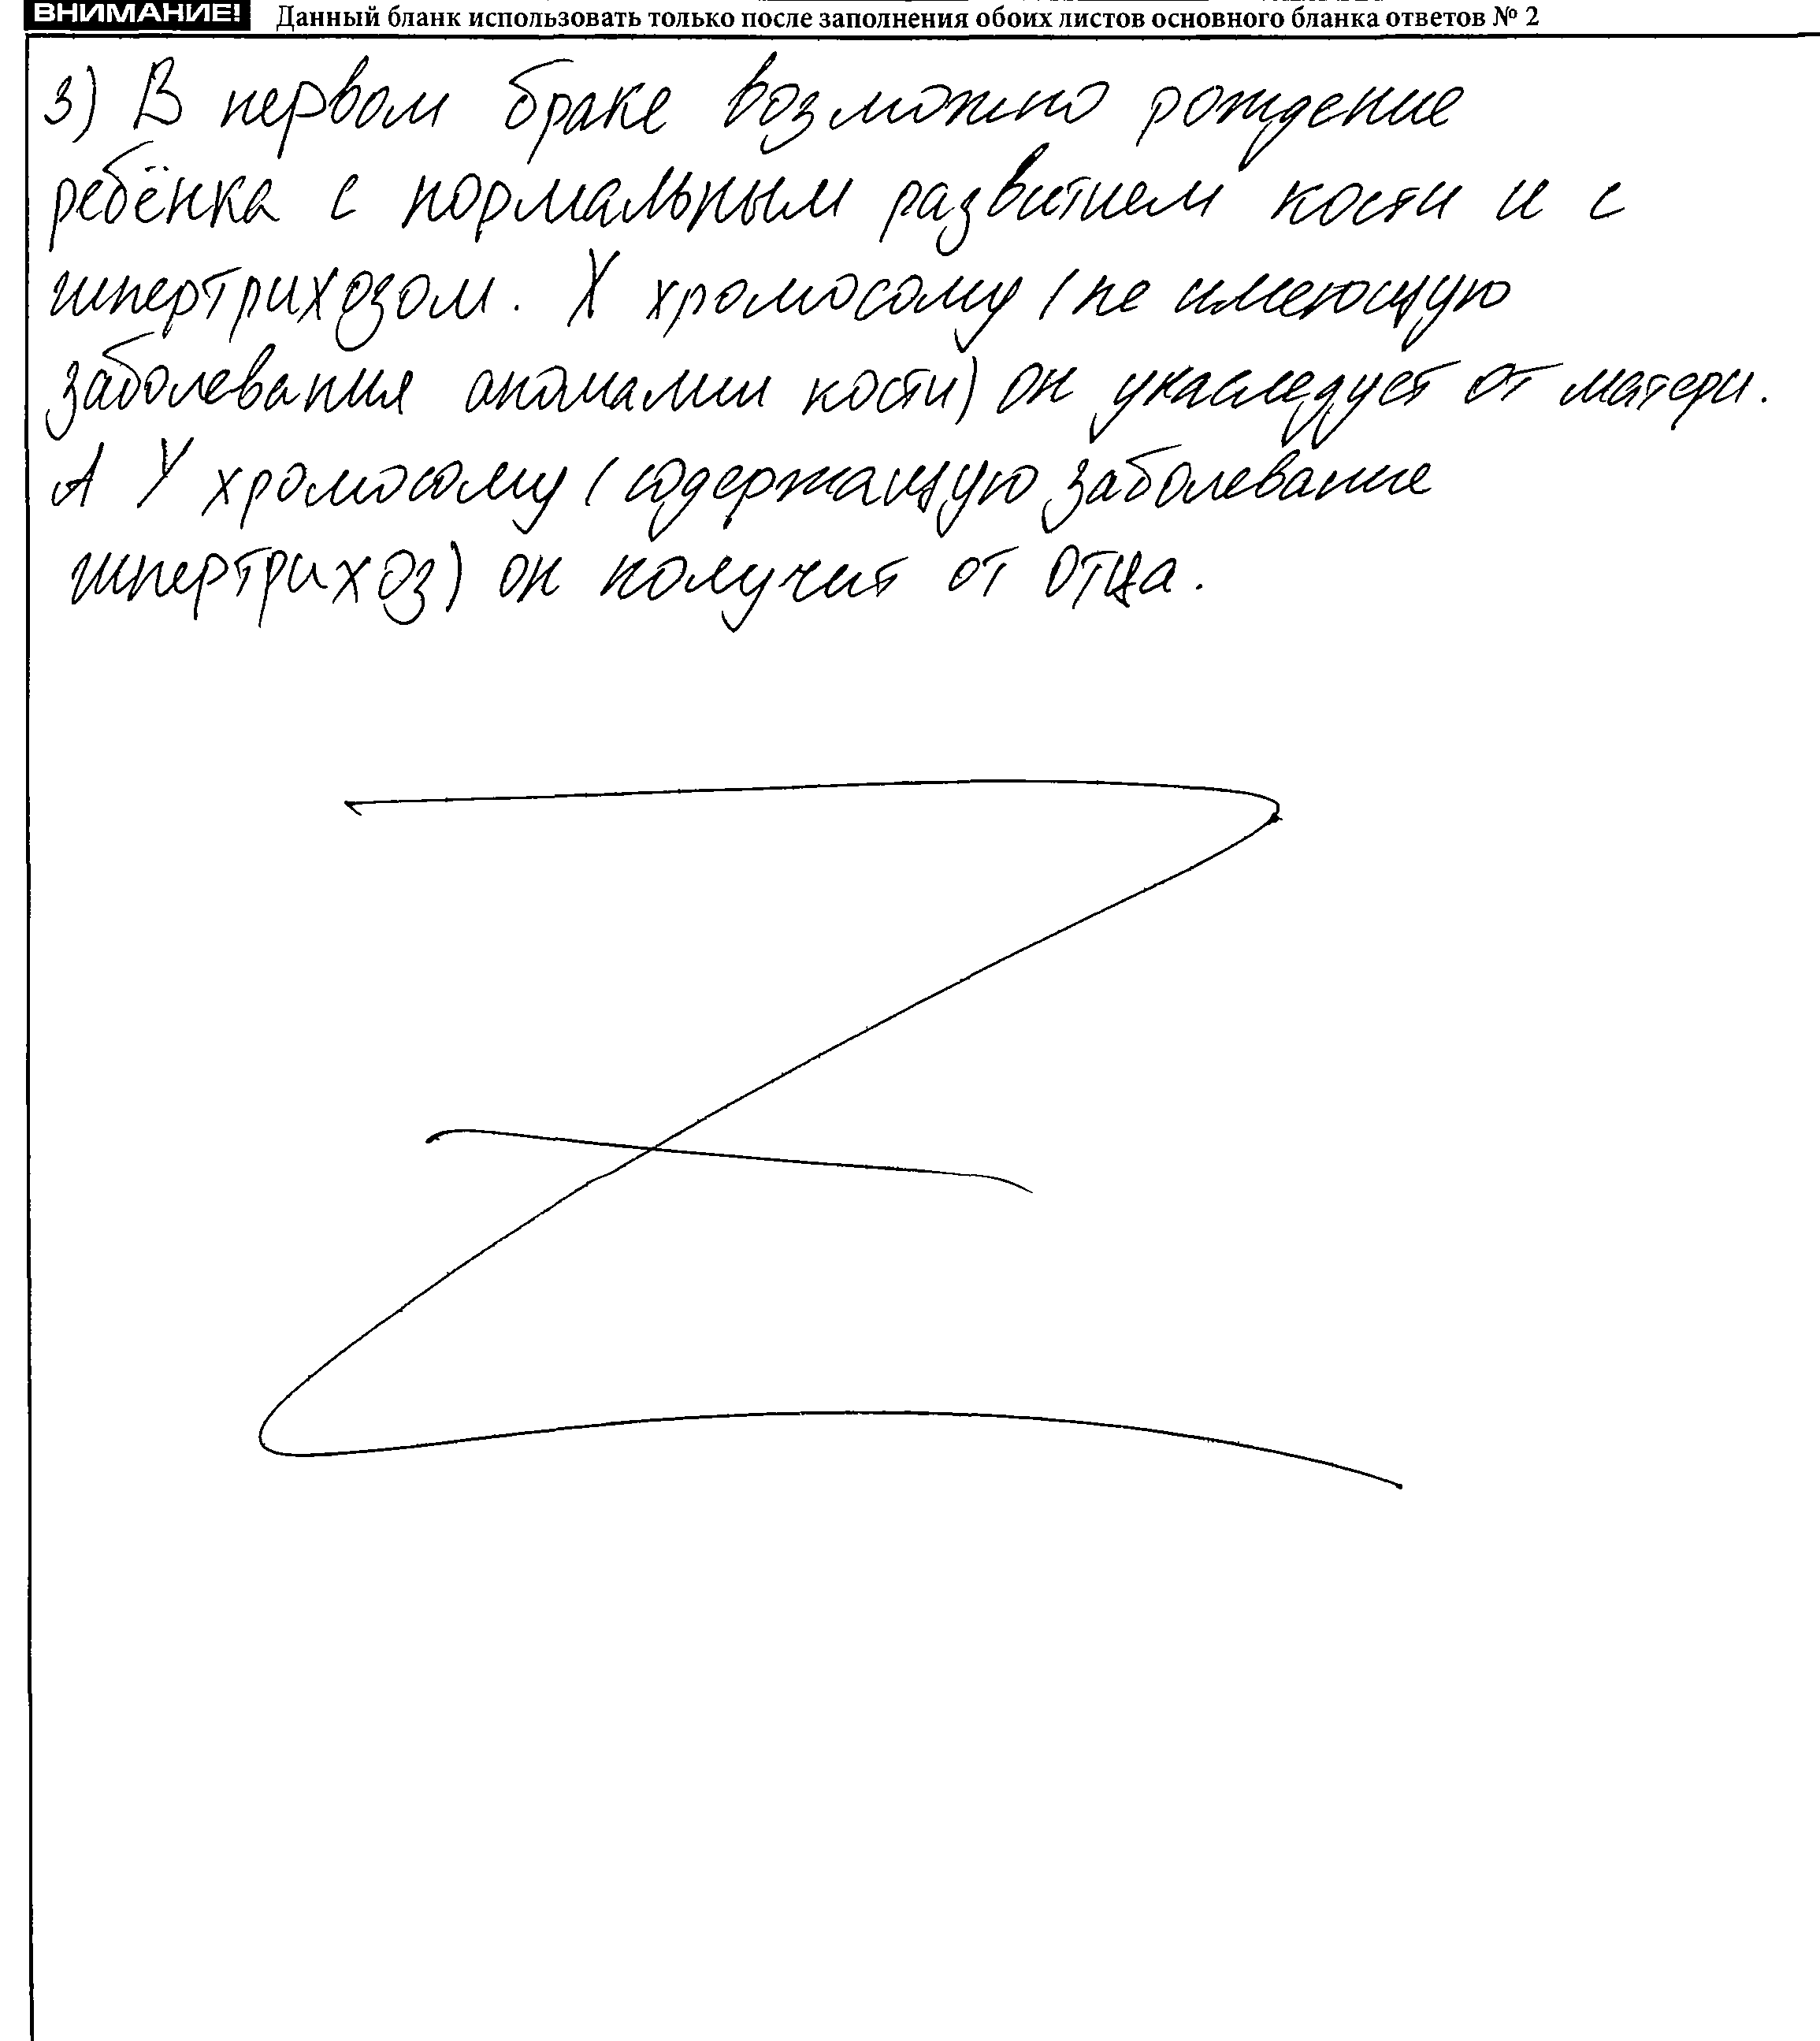 ВНИМАНИЕ! Данный бланк использовать только после заполнения обоих листов основного бланка ответов № 2
3) В первом браке возможно рождение
ребёнка с нормальным развитием кости и с
гипертрихозом. X хромосому (не имеющую
заболевания аномалии кости) он унаследует от матери.
А Y хромосому (содержащую заболевание
гипертрихоз) он получит от отца.
Z